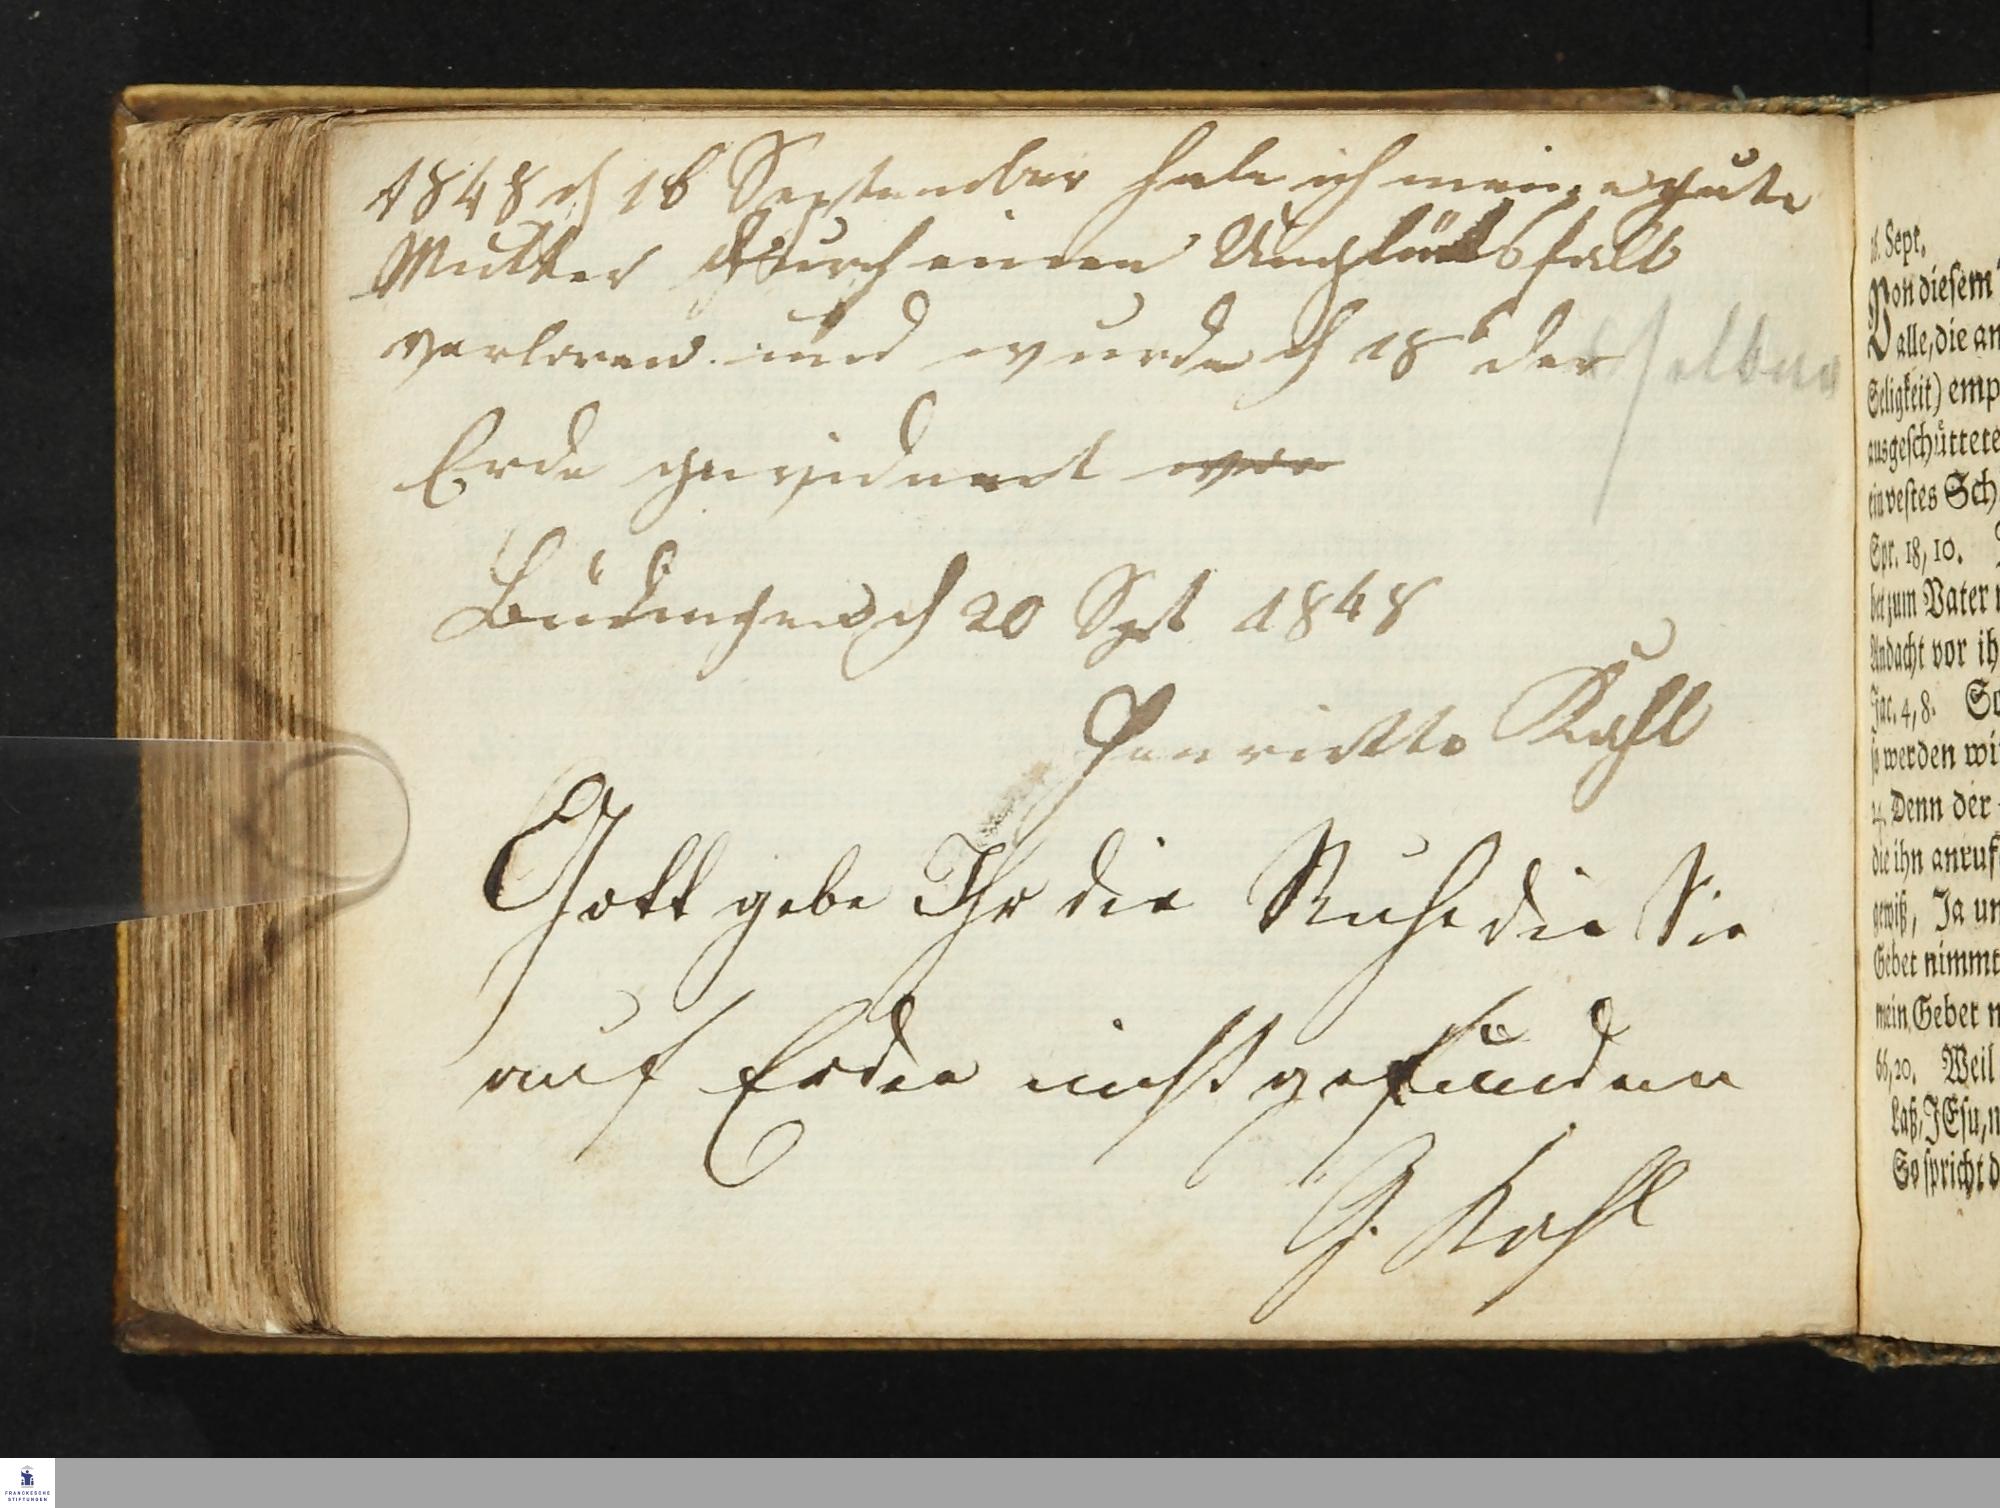 1848 d 16 September habe ich meine gute
Mutter durch einen Unglücksfall
verloren und wurde d 18 der
selben
Erde gewidmet
Büdingen d 20 Spt 1848
Henriette Kahl
Gott gebe Ihr die Ruhe die Sie
auf Erden nicht gefunden
G. Kahl
16. Sept.
Von diesem
alle, die an
Seligkeit) emp
ausgeschüttete
ein vestes Sch
Spr. 18, 10.
bet zum Vater
Andacht vor ih
Jac. 4, 8. So
so werden wi
24. Denn der
die ihn anruf
gewiß, Ja un
Gebet nimmt
mein Gebet n
66, 20. Weil
Laß, JEsu, n
So spricht d
FRANCKESCHE
STIFTUNGEN